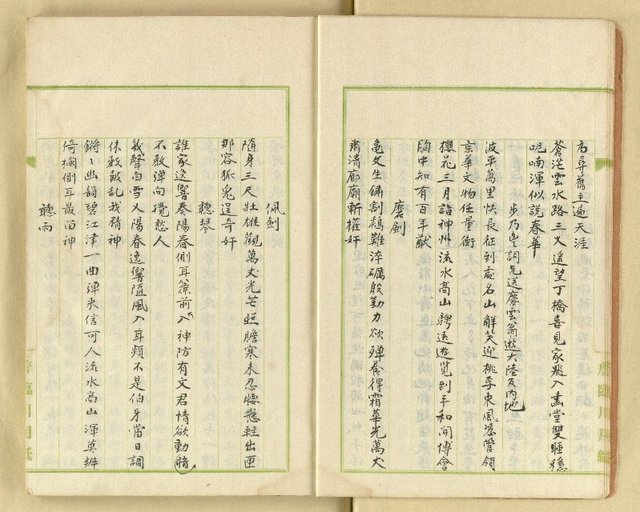 右尋舊主遍天涯
蒼茫雲水路三叉遥望丁橋喜見家飛入畫堂雙睡穩
呢喃渾似說春華
步乃兰詞兄送摩雲翁遊大陸及內地
波平萬里快長征到處名山解笑迎桃李東風憑管領
京華文物任量衡
櫻花三月詣神州流水高山轉送遊覽到平和開博會
胸中知有百年猷
磨劍
龜文生鏽割鷄難淬礪殷勤力欲殫養得霜華光萬丈
肅清廊廟斬權奸
佩劍
隨身三尺壯雄觀萬丈光芒照膽寒未忍腰懸輕出匣
那容狐兔逞奇奸
聽琴
誰家逸響奏陽春側耳簾前入神防有文君情欲動暗
不教彈向攪愁人
幾聲白雪入陽春逸響隨風入耳頻不是伯牙當日調
休教鼓亂我精神
鏘々幽韻碧江津一曲彈來信可人流水高山渾莫辨
倚欄側耳最留神
聽雨